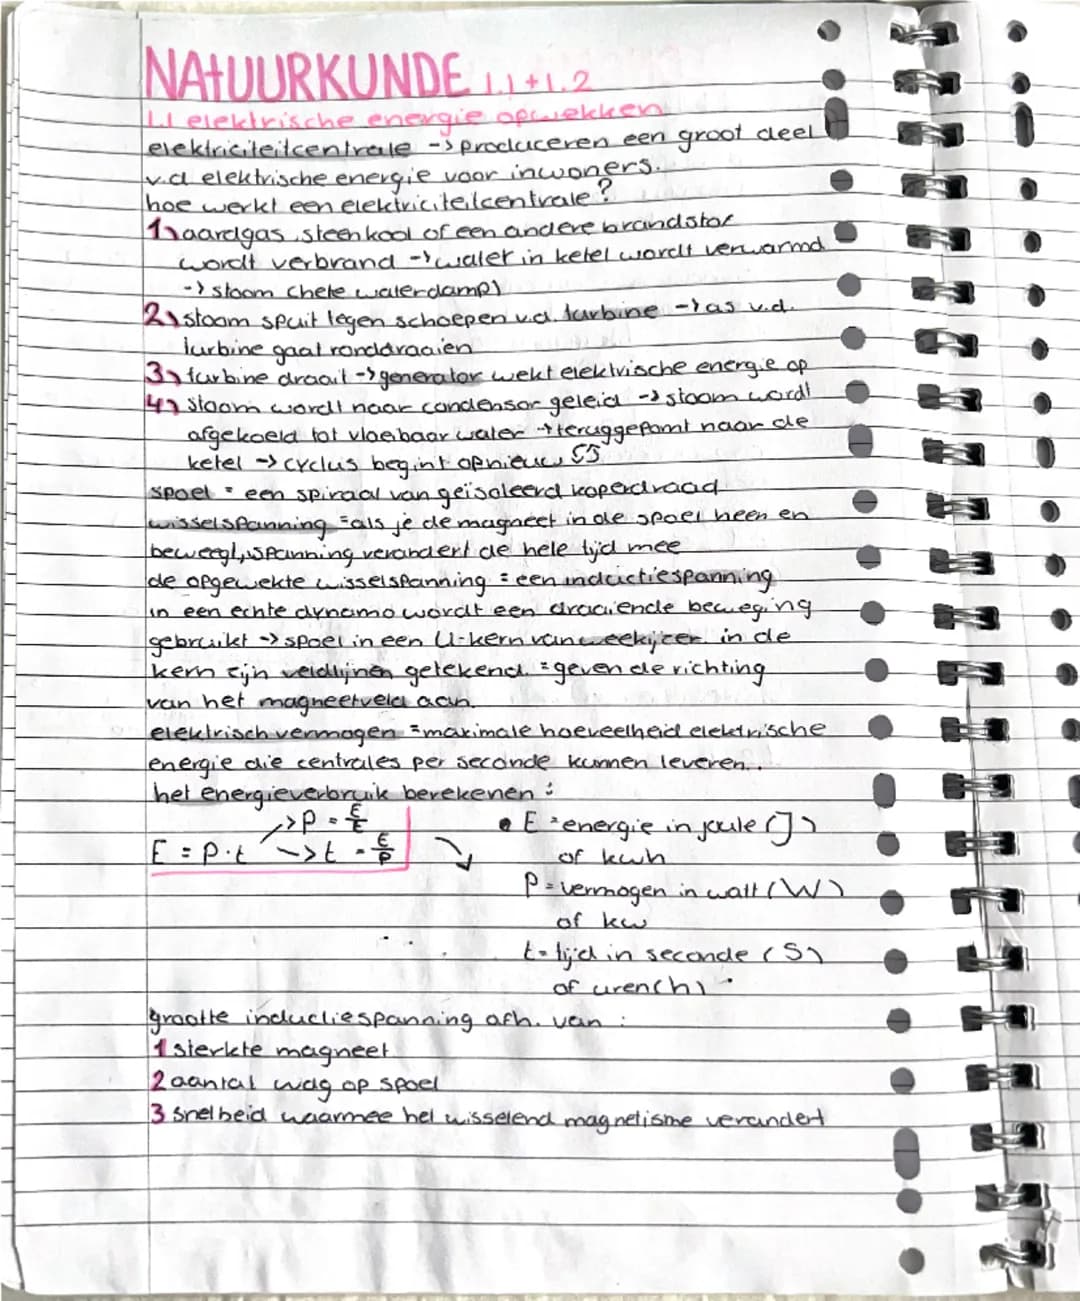 NATUURKUNDE 1.1+1.2
1.1 elektrische energie opwekken
elektriciteitcentrale -> produceren een groot deel
v.d elektrische energie voor inwoners.
hoe werkt een elektriciteitcentrale?
1) aardgas, steenkool of een andere brandstof
wordt verbrand -> water in ketel wordt verwarmd
-> stoom (hete waterdamp)
2) stoom spuit tegen schoepen v.d. turbine -> as v.d.
turbine gaat ronddraaien
3) turbine draait -> generator wekt elektrische energie op
4) stoom wordt naar condensor geleid -> stoom wordt
afgekoeld tot vloeibaar water -> teruggepomt naar de
ketel -> cyclus begint opnieuw
spoel = een spiraal van geïsoleerd koperdraad
wisselspanning = als je de magneet in de spoel heen en
beweegt, spanning verandert de hele tijd mee
de opgewekte wisselspanning = een inductiespanning
in een echte dynamo wordt een draaiende beweging
gebruikt -> spoel in een U-kern van weekijzer in de
kern zijn veldlijnen getekend. = geven de richting
van het magneetveld aan.
elektrisch vermogen = maximale hoeveelheid elektrische
energie die centrales per seconde kunnen leveren..
het energieverbruik berekenen :
-> P = E/t
E = P·t -> t = E/P
• E = energie in joule (J)
of kwh
P = vermogen in watt (W)
of kw
t = tijd in seconde (S)
of uren (h)
grootte inductiespanning afh. van :
1 sterkte magneet
2 aantal wdg op spoel
3 snelheid waarmee het wisselend magnetisme verandert